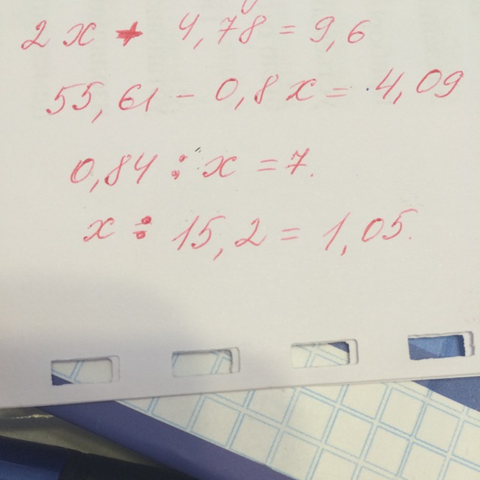 2x + 4,78 = 9,6
55,61 - 0,8x = 4,09
0,84 : x = 7.
x : 15,2 = 1,05.